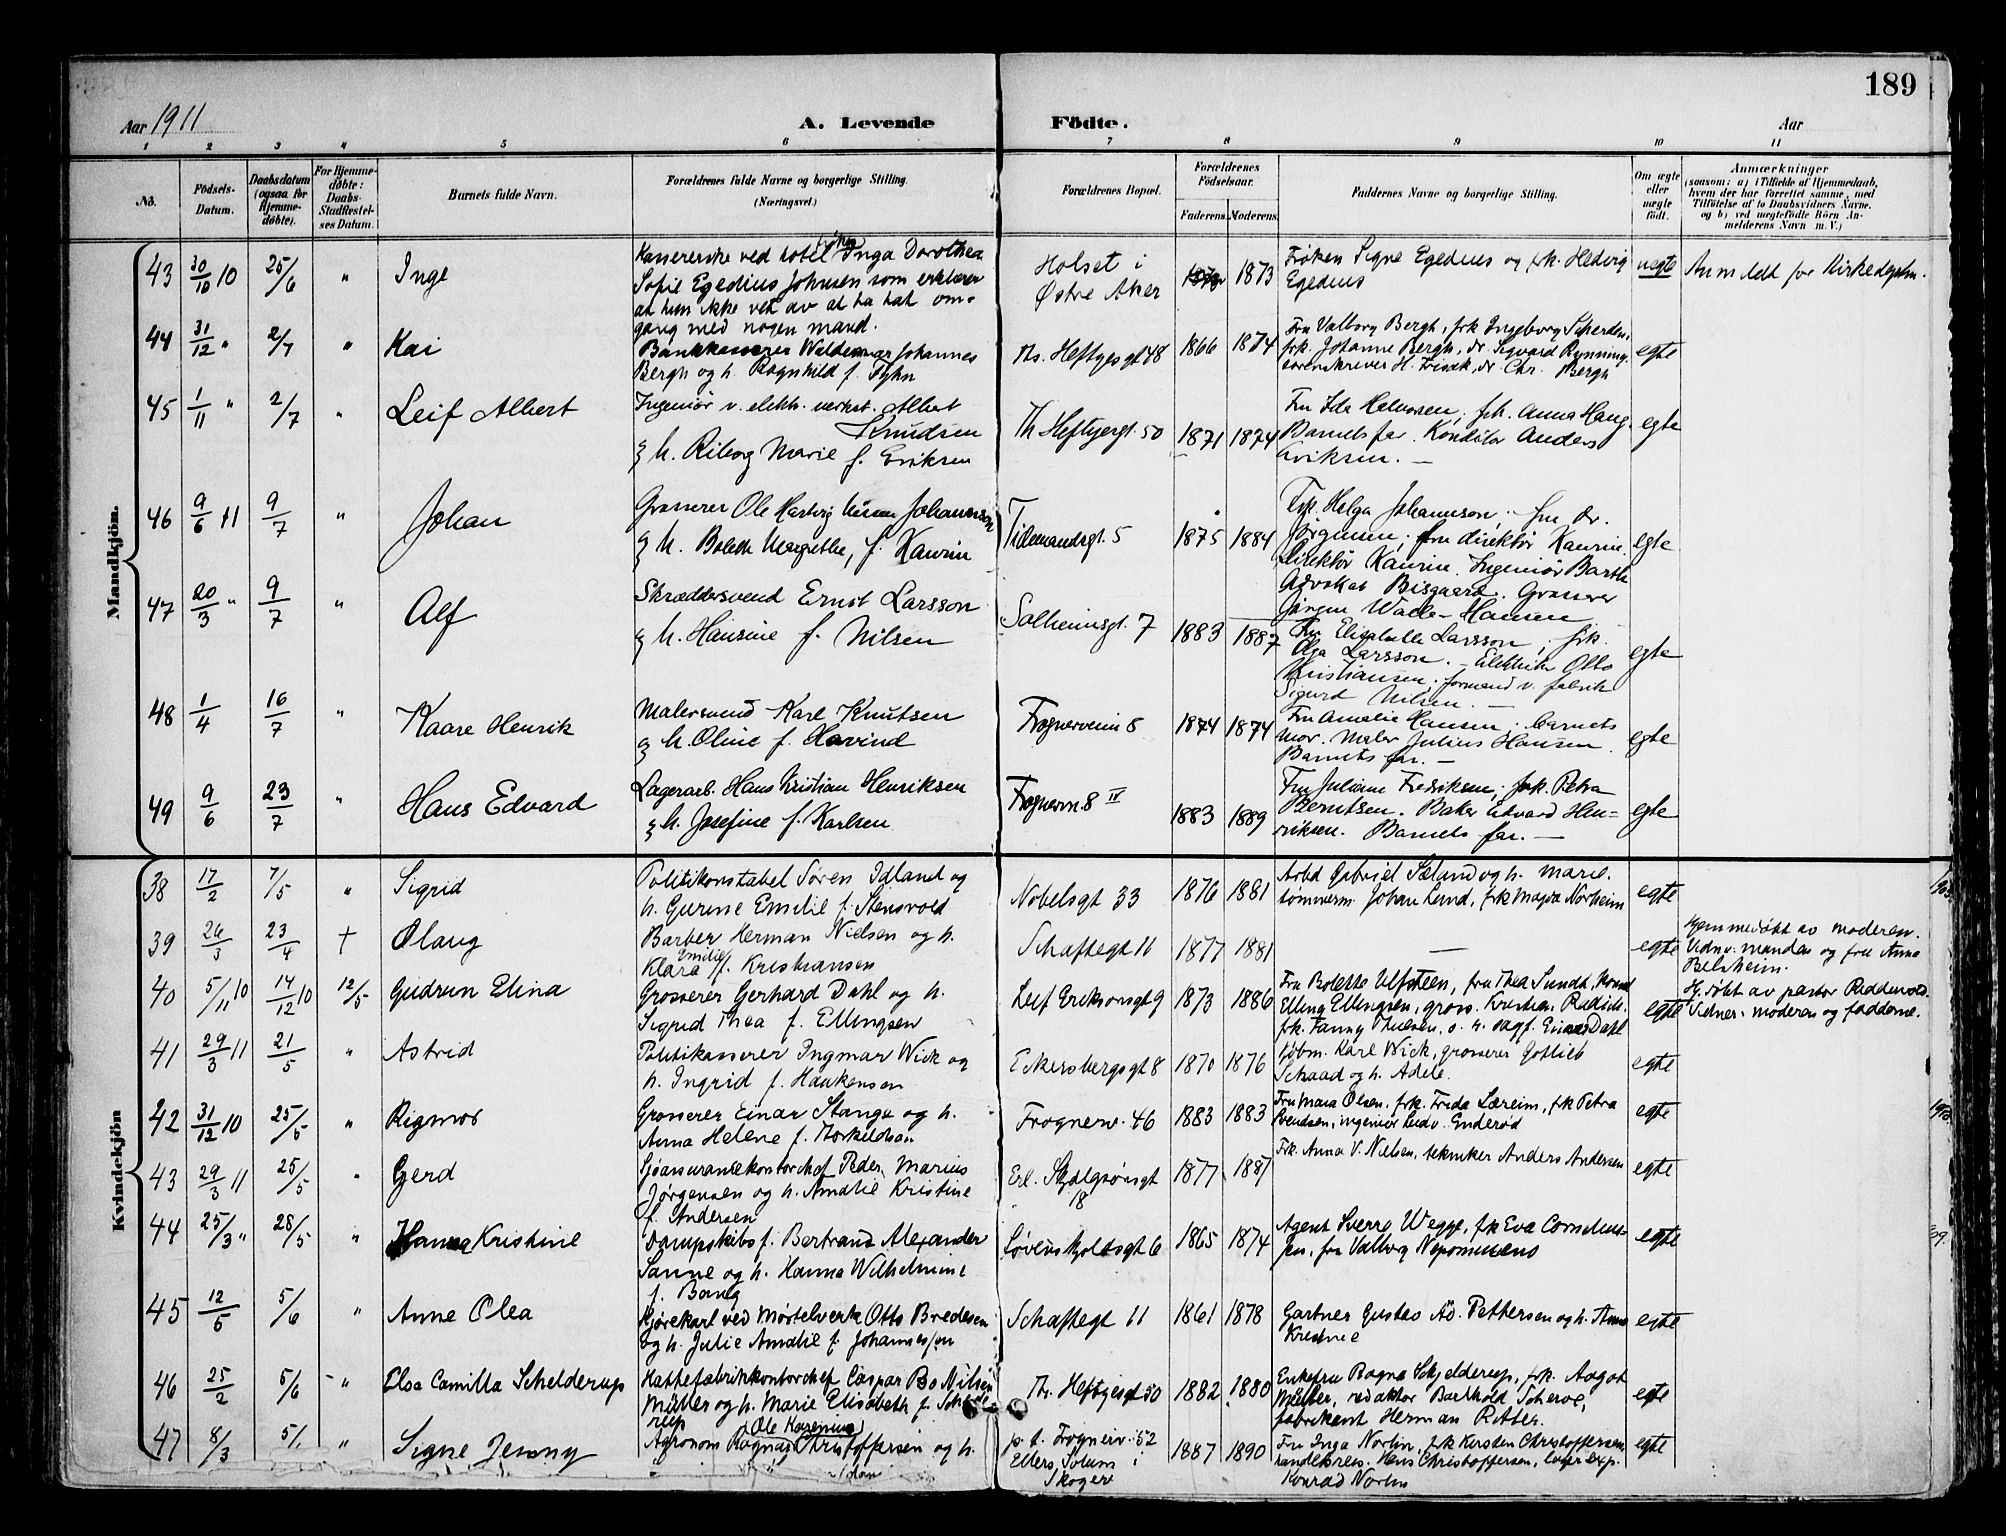 189
Aar 1911
A. Levende Födte.
Aar
1 2 3 4 5 6 7 8 9 10 11
No.
Födsels-
Datum.
Daabsdatum
(ogsaa for
Hjemme-
döbte).
For Hjemme-
döbte:
Daabs-
Stadfestel-
ses Datum.
Barnets fulde Navn.
Forældrenes fulde Navne og borgerlige Stilling.
(Næringsvei.)
Forældrenes Bopæl.
Forældrenes
Födselsaar.
Faderens. Moderens.
Faddernes Navne og borgerlige Stilling.
Om ægte
eller
uægte
født.
Anmærkninger
(saasom: a) i Tilfælde af Hjemmedaab,
hvem der har forrettet samme, med
Tilföielse af to Daabsvidners Navne.
og b) ved uægtefödte Börn An-
melderens Navn m. V.)
Mandkjön.
43 30/10 10 25/6 " Inge
Kassererske ved hotel Inga Dorothea
Sofie Egedius Johnsen som erklærer
at hun ikke vet av at ha hat om-
gang med nogen mand.
Holset i
Østre Aker
1873
Frøken Signe Egedius og frk. Hedvig
Egedius
uegte
Anmeldt for Kirkedepm.
44 31/12 " 2/7 " Kai
Bankkasserer Waldemar Johannes
Bergh og h. Ragnhild f. Dyhn
Th. Heftyesgt 48
1866 1874
Fru Valborg Bergh, frk Ingeborg
frk. Johanne Bergh, dr Sigvard Rynning,
sorenskriver H. dr. Chr. Bergh
egte
45 1/11 " 2/7 " Leif Albert
Ingeniør v. elektr. verkst. Albert
Knudsen
& h. Marie f. Eriksen
Th Heftyesgt. 50
1871 1874
Fru Ida Halvorsen; frk. Anna Haug.
Barnets far. Konditor Anders
Eriksen. —
egte
46 9/6 11 9/7 " Johan
Grosserer Ole Hartvig Johannson
& h. Margrethe, f. Kaurin
Tidemandsgt. 5
1875 1884
Frk. Helga Johannson; fru Dr.
fru direktør Kaurin.
Direktør Kaurin. Ingeniør Barth
Advokat Bisgaard. Grosserer
Jørgen Hansen
egte
47 20/3 " 9/7 " Alf
Skræddersvend Ernst Larsson
& h. Hansine f. Nilsen
Solheimsgt. 7
1883 1887
Fru Elisabeth Larsson; frk.
Olga Larsson. — Otto
Kristiansen. formand v. fabrik
Sigurd Nilsen. —
egte
48 1/4 16/7 " Kaare Henrik
Malersvend Karl Knutsen
& h. Oline f. Havind
Frognerveien 8
1874 1874
Fru Amalie Hansen; barnets
mor. Maler Julius Hansen.
Barnets far. —
egte
49 9/6 23/7 " Hans Edvard
Lagerarb. Hans Kristian Henriksen
& h. Josefine f. Karlsen
Frognervn 8 IV
1883 1889
Fru Juliane Fredriksen; frk. Petra
Berntsen. Baker Edvard Hen-
riksen. Barnets far. —
egte
Kvindekjön
38 17/2 7/5 " Sigrid
Politikonstabel Søren Idland og
h. Gurine Emilie f. Stensvold
Nobelsgt 33
1876 1881
Arbd Gabriel Sæland og h. Marie.
tømmerm. Johan Lund, frk Magda Norheim
egte
39 26/3 23/4 † Olaug
Barber Herman Nielsen og h.
Klara Emilie f. Kristiansen
Schaftegt 11
1877 1881
—
egte
Hjemmedøbt av moderen.
Vidn. manden og fru Anna
Belsheim.
40 5/11 10 14/12 10 12/5 Gudrun Elina
Grosserer Gerhard Dahl og h.
Sigrid Thea f. Ellingsen
Leif Eriksonsgt 9
1873 1886
Fru Bolette Ulfsteen, fru Thea Sundt,
Elling Ellingsen, gross. Kristian
frk. Fanny Thuesen, o. r. sagf. Einar Dahl
egte
Hj. døbt av pastor Riddervold.
Vidner: moderen og fadderne.
41 29/3 11 21/5 " Astrid
Politikasserer Ingmar Wick og
h. Ingrid f. Haukensen
Eckersbergsgt 8
1870 1876
Kjøbm. Karl Wick, grosserer Gotlieb
Schaad og h. Adele.
egte
42 31/12 10 25/5 " Rigmor
Grosserer Einar Stange og h.
Anna Helene f. Torkildsen
Frognerv. 46
1883 1883
Fru Maria Olsen, frk. Frida Læreim, frk Petra
Svendsen, ingeniør Ludv. Enderød
egte
43 29/3 11 25/5 " Gerd
Sjøassurancekontorchef Peder Marius
Jørgensen og h. Amalie Kristine
f. Andersen
Erl. Skjalgsønsgt
18
1877 1887
Frk. Anna V. Nielsen, tekniker Anders Andersen
egte
44 25/3 " 28/5 " Hanna Kristine
Dampskibsf. Bertrand Alexander
Sanne og h. Hanna Wilhelmine
f. Bang
Løvenskjoldsgt 6
1865 1874
Agent Sverre Wegge, frk Eva Cornelius-
sen, fru Valborg Nepomuceno
egte
45 12/5 5/6 " Anne Olea
Kjørekarl ved Mørtelverk Otto Bredesen
og h. Julie Amalie f. Johannessen
Schaftegt 11
1861 1878
Gartner Gustav Ad. Pettersen og h. Anna
Kristine
egte
46 25/2 5/6 " Elsa Camilla Schelderup
Hattefabrikkontorchef Caspar Bo Nilsen
Müller og h. Marie Elisabeth f. Schelde-
rup
Th. Heftyesgt 50
1882 1880
Enkefru Ragna Schjelderup, frk. Aagot
Müller, redaktør Barthold
fabrikant Herman Ritter.
egte
47 8/3 5/ " Signe Jenny
(Ole Kasenius)
Agronom Ragnar Christoffersen og h.
p. t. Frognerv. 52
Ellers Solum i
Skoger
1887 1890
Fru Inga Norlin, frk Kirsten Christoffersen,
handelsreis. Hans Christoffersen,
Konrad Norlin
egte